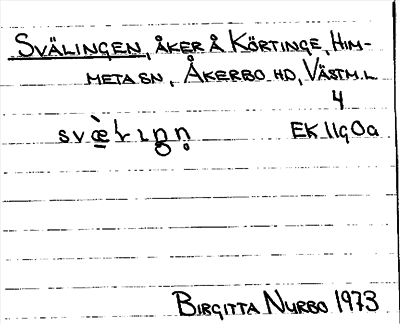 SVÄLINGEN, ÅKER Å KÖRTINGE, HIM-
META SN, ÅKERBO HD, VÄSTM.L
4
EK 11g0a
BIRGITTA NURBO 1973